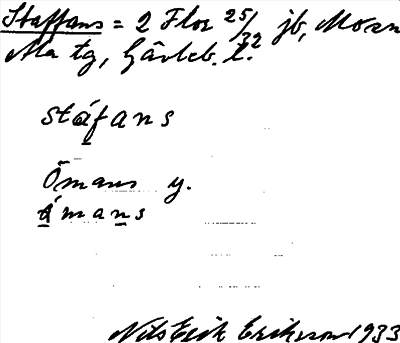 Staffans = 2 Flor 25/32 jb, Moen
Ma tg, Gävleb. l.
stáfans
Ömans y.
ámans
Nils Erik Eriksson 1933